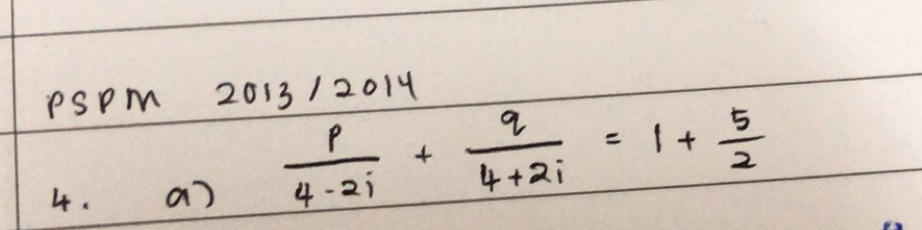 PSPM 2013/2014
4. a) p/(4-2i) + q/(4+2i) = 1 + 5/2